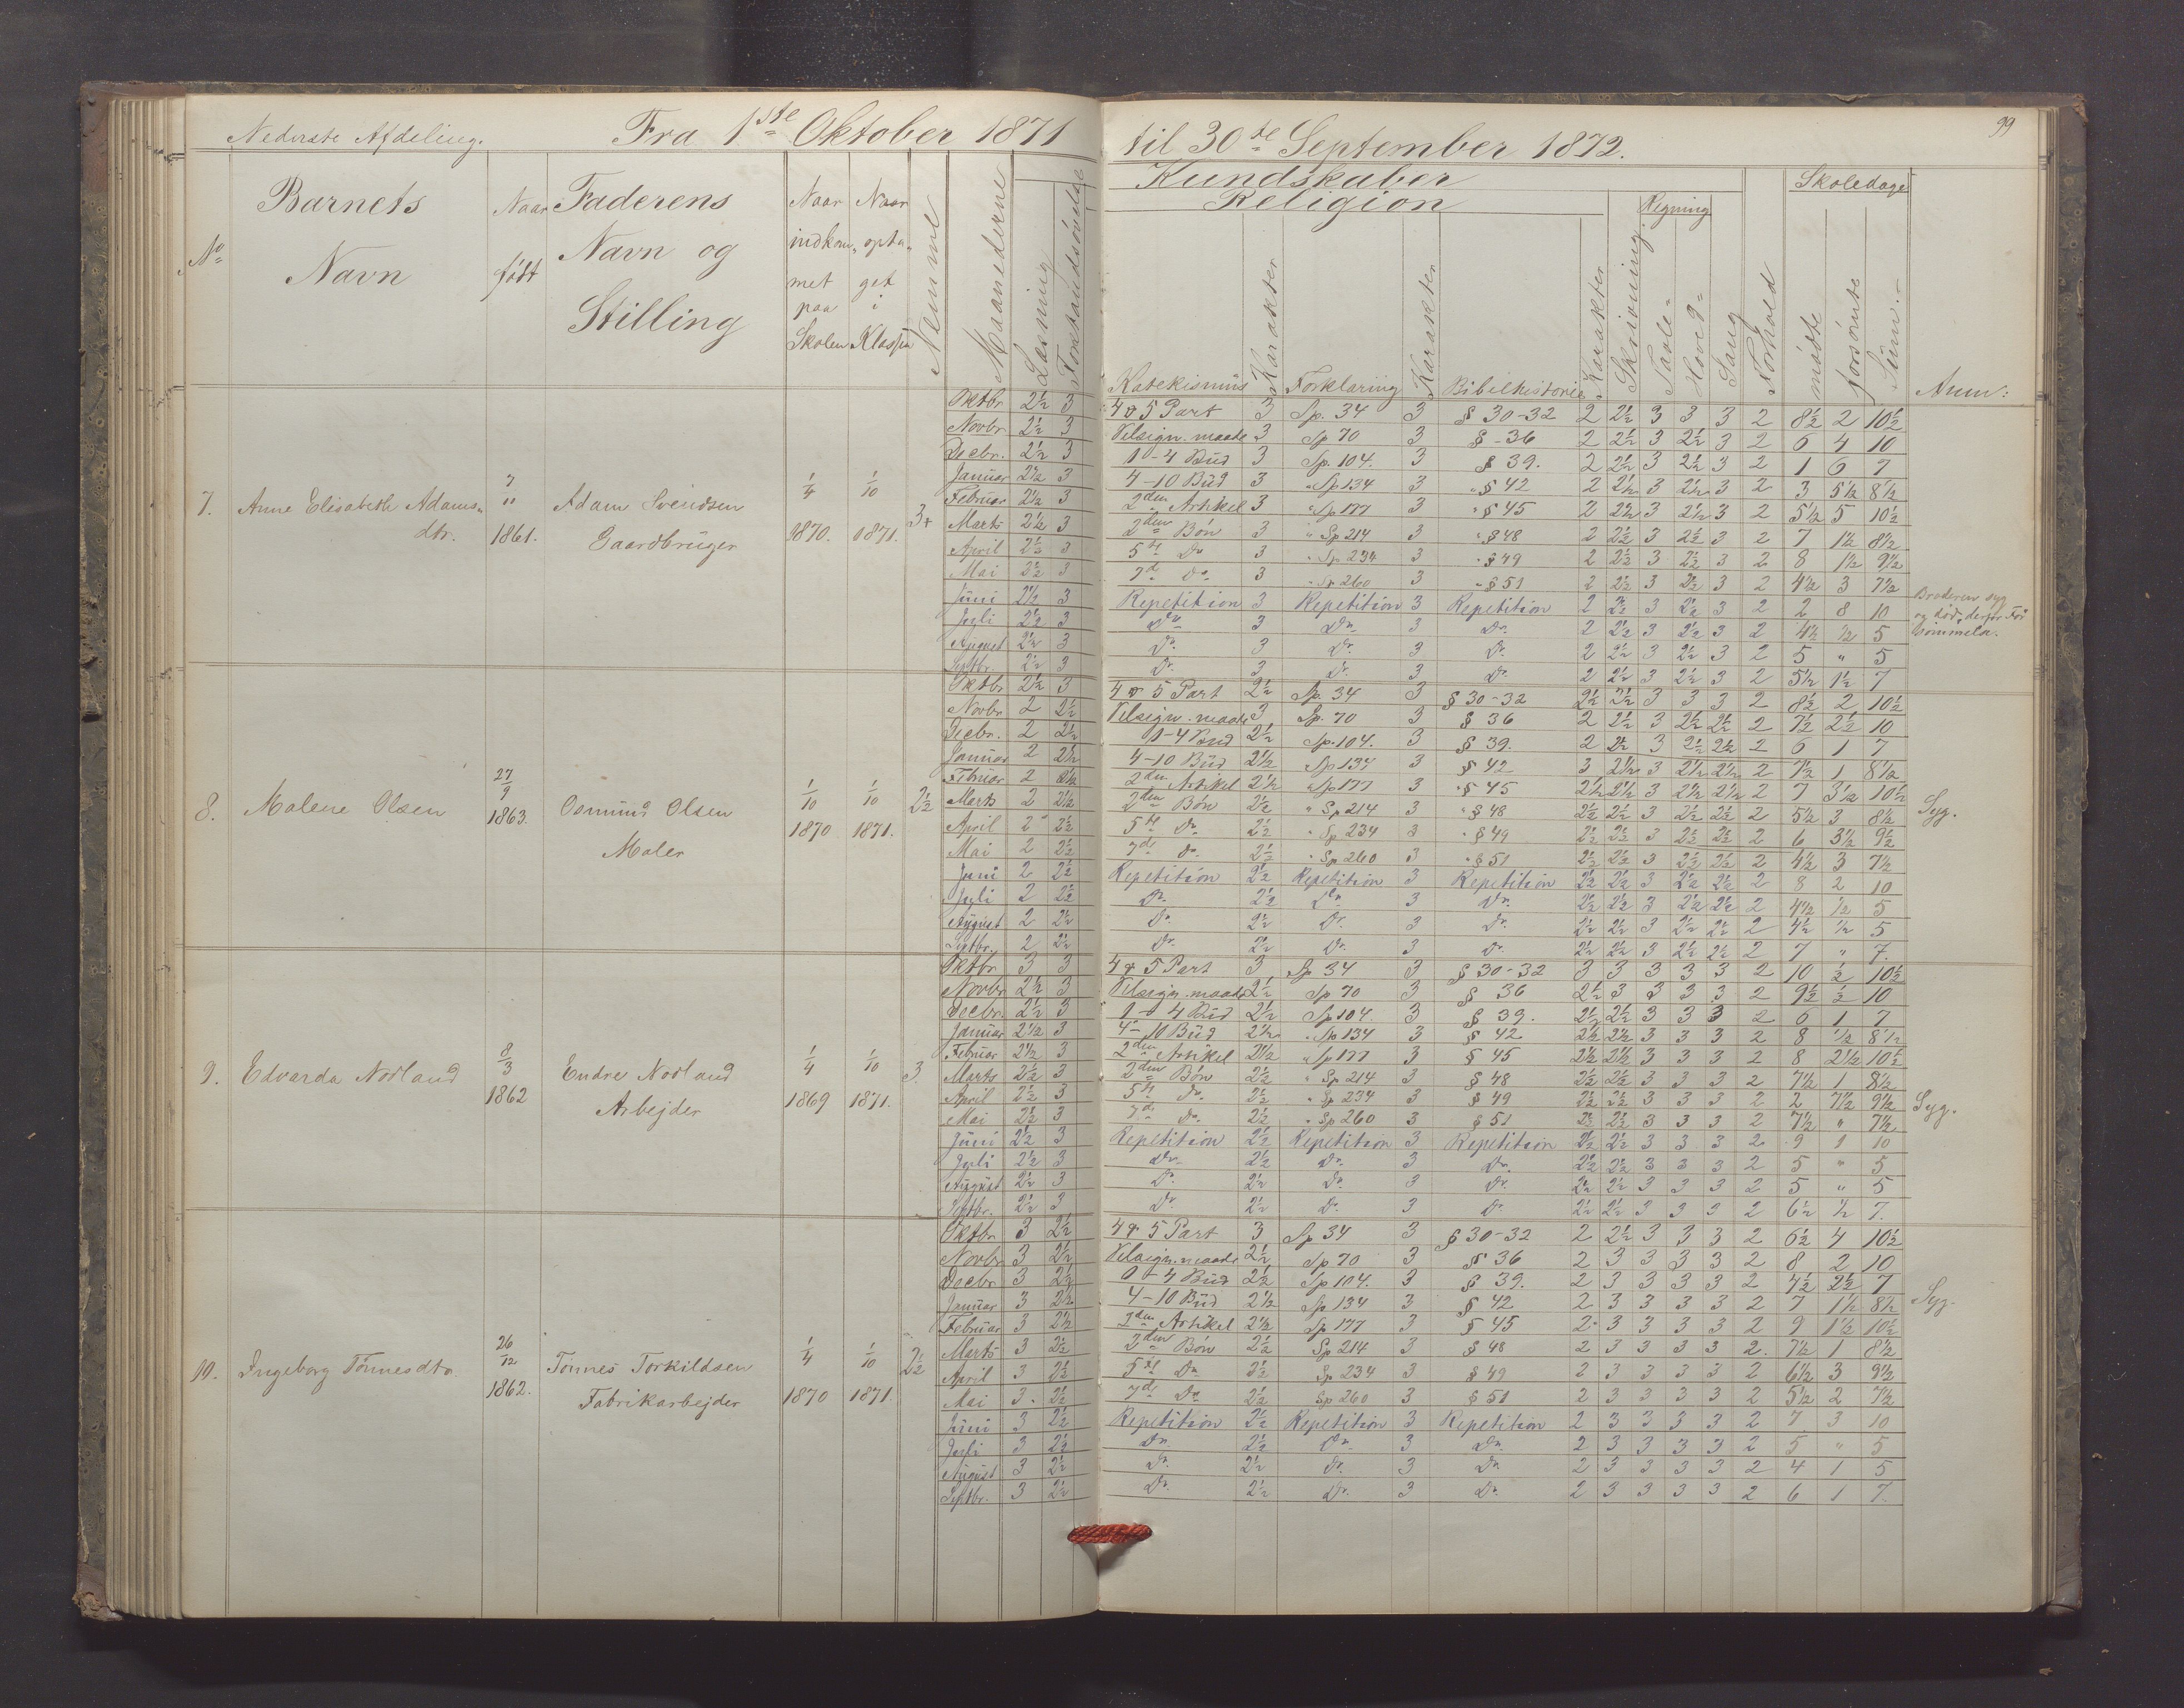 Nederste Afdeling. Fra 1ste Oktober 1871 til 30te September 1872. 99
No Barnets Navn Naar født Faderens Navn og Stilling Naar indkommet paa Skolen Naar optaget i Klassen Nemme Maanederne Læsning Forstandsøvelse
Kundskaber Skoledage
Religion Regning
Katekismus Karakter Forklaring Karakter Bibelhistorie Karakter Skrivning Tavle- Hoved- Sang Forhold mødte forsømte Sum. Anm:
7. Anne Elisabeth Adamsdtr. 7/11 1861. Adam Svendsen Gaardbruger 1/4 1870. 1/10 1871. 3+
Oktbr 2½ 3 4 & 5 Part 3 Sp. 34 3 § 30-32 2 2½ 3 3 3 2 8½ 2 10½
Novbr 2½ 3 Velsign. maade 3 Sp 70 3 § -36 2 2½ 3 2½ 3 2 6 4 10
Decbr. 2½ 3 1-4 Bud 3 Sp. 104. 3 § 39. 2 2½ 3 2½ 3 2 1 6 7
Januar 2½ 3 4-10 Bud 3 "Sp 134 3 "§ 42 2 2½ 3 2½ 3 2 3 5½ 8½
Februar 2½ 3 2den Artikel 3 "Sp 177 3 "§ 45 2 2½ 3 2½ 3 2 5½ 5 10½
Marts 2½ 3 2den Bøn 3 "Sp 214 3 "§ 48 2 2½ 3 2½ 3 2 7 1½ 8½
April 2½ 3 5te Do 3 "Sp 234 3 "§ 49 2 2½ 3 2½ 3 2 8 1½ 9½
Mai 2½ 3 7de Do 3 "Sp 260 3 "§ 51 2 2½ 3 2½ 3 2 4½ 3 7½
Juni 2½ 3 Repetition 3 Repetition 3 Repetition 2 2½ 3 2½ 3 2 2 8 10 Broderen syg og død, derfor Forsømmelse.
Juli 2½ 3 Do 3 Do 3 Do. 2 2½ 3 2½ 3 2 4½ ½ 5
August 2½ 3 Do. 3 Do. 3 Do. 2 2½ 3 2½ 3 2 5 " 5
Septbr. 2½ 3 Do. 3 Do. 3 Do. 2 2½ 3 2½ 3 2 5½ 1½ 7
8. Malene Olsen 27/9 1863. Osmund Olsen Maler 1/10 1870 1/10 1871. 2½
Oktbr 2½ 3 4 & 5 Part 2½ Sp. 34 3 § 30-32 2½ 2½ 3 3 3 2 8½ 2 10½
Novbr 2 2½ Velsign. maade 3 Sp. 70 3 § 36 2 2½ 3 2½ 2½ 2 7½ 2½ 10
Decbr. 2 2½ 1-4 Bud 2½ Sp. 104. 3 § 39. 2 2½ 3 2½ 2½ 2 6 1 7
Januar 2 2½ 4-10 Bud 2½ Sp 134 3 § 42 3 2½ 3 2½ 2½ 2 7½ 1 8½
Februar 2 2½ 2den Artikel 2½ "Sp 177 3 "§ 45 2½ 2½ 3 2½ 2½ 2 7 3½ 10½
Marts 2 2½ 2den Bøn 2½ "Sp 214 3 "§ 48 2½ 2½ 3 2½ 2½ 2 5½ 3 8½ Syg.
April 2 2½ 5te Do. 2½ "Sp 234 3 "§ 49 2½ 2½ 3 2½ 2½ 2 6 3½ 9½
Mai 2 2½ 7de Do. 2½ "Sp 260 3 "§ 51 2½ 2½ 3 2½ 2½ 2 4½ 3 7½
Juni 2 2½ Repetition 2½ Repetition 3 Repetition 2½ 2½ 3 2½ 2½ 2 8 2 10
Juli 2 2½ Do. 2½ Do. 3 Do. 2½ 2½ 3 2½ 2½ 2 4½ ½ 5
August 2 2½ Do. 2½ Do. 3 Do. 2½ 2½ 3 2½ 2½ 2 4½ ½ 5
Septbr. 2 2½ Do. 2½ Do. 3 Do. 2½ 2½ 3 2½ 2½ 2 7 " 7.
9. Edvarda Norland 8/3 1862 Endre Norland Arbejder 1/4 1869 1/10 1871. 3.
Oktbr 3 3 4 & 5 Part 3 Sp 34 3 § 30-32 3 3 3 3 3 2 10 ½ 10½
Novbr 2½ 3 Velsign. maade 2½ Sp 70 3 § 36 2½ 3 3 3 3 2 9½ ½ 10
Decbr. 2½ 3 1-4 Bud 2½ Sp 104. 3 § 39. 2½ 2½ 3 3 3 2 6 1 7
Januar 2½ 3 4-10 Bud 2½ "Sp 134 3 § 42 2½ 2½ 3 3 3 2 8 ½ 8½
Februar 2½ 3 2den Artikel 2½ "Sp 177 3 § 45 2½ 2½ 3 3 3 2 8 2½ 10½
Marts 2½ 3 2den Bøn 2½ "Sp 214 3 § 48 2½ 2½ 3 3 3 2 7½ 1 8½
April 2½ 3 5te Do. 2½ "Sp 234 3 § 49 2½ 2½ 3 3 3 2 2 7½ 9½ Syg.
Mai 2½ 3 7de Do. 2½ "Sp 260 3 § 51 2½ 2½ 3 3 3 2 7½ " 7½
Juni 2½ 3 Repetition 2½ Repetition 3 Repetition 2½ 2½ 3 3 3 2 9 1 10
Juli 2½ 3 Do. 2½ Do. 3 Do. 2½ 2½ 3 3 3 2 5 " 5
August 2½ 3 Do. 2½ Do. 3 Do. 2½ 2½ 3 3 3 2 5 " 5
Septbr. 2½ 3 Do. 2½ Do. 3 Do. 2½ 2½ 3 3 3 2 6½ ½ 7.
10. Ingeborg Tønnesdtr. 26/12 1862. Tønnes Torkildsen Fabrikarbejder 1/4 1870 1/10 1871. 2½
Oktbr 3 2½ 4 & 5 Part 3 Sp 34 3 § 30-32 2 2½ 3 3 3 2 6½ 4 10½
Novbr 3 2½ Velsign. maade 2½ Sp 70 3 § 36 2 3 3 3 3 2 8 2 10
Decbr 3 2½ 1-4 Bud 2½ Sp 104. 3 § 39. 2 3 3 3 3 2 4½ 2½ 7
Januar 3 2½ 4-10 Bud 2½ Sp 134 3 § 42 2 3 3 3 3 2 7 1½ 8½ Syg.
Februar 3 2½ 2den Artikel 2½ Sp 177 3 § 45 2 3 3 3 3 2 9 1½ 10½
Marts 3 2½ 2den Bøn 2½ Sp 214 3 § 48 2 3 3 3 3 2. 7½ 1 8½
April 3 2½ 5te Do 2½ Sp. 234 3 § 49 2 3 3 3 3 2 6½ 3 9½
Mai 3. 2½ 7de Do 2½ Sp 260 3 § 51 2 3 3 3 3 2 5½ 2 7½
Juni 3 2½ Repetition 2½ Repetition 3 Repetition 2 3 3 3 3 2 7 3 10
Juli 3 2½ Do. 2½ Do. 3 Do. 2 3 3 3 3 2 5 " 5
August 3 2½ Do. 2½ Do. 3 Do. 2 3 3 3 3 2 4 1 5
Septbr. 3 2½ Do. 2½ Do. 3 Do. 2 3 3 3 3 2 6 1 7.